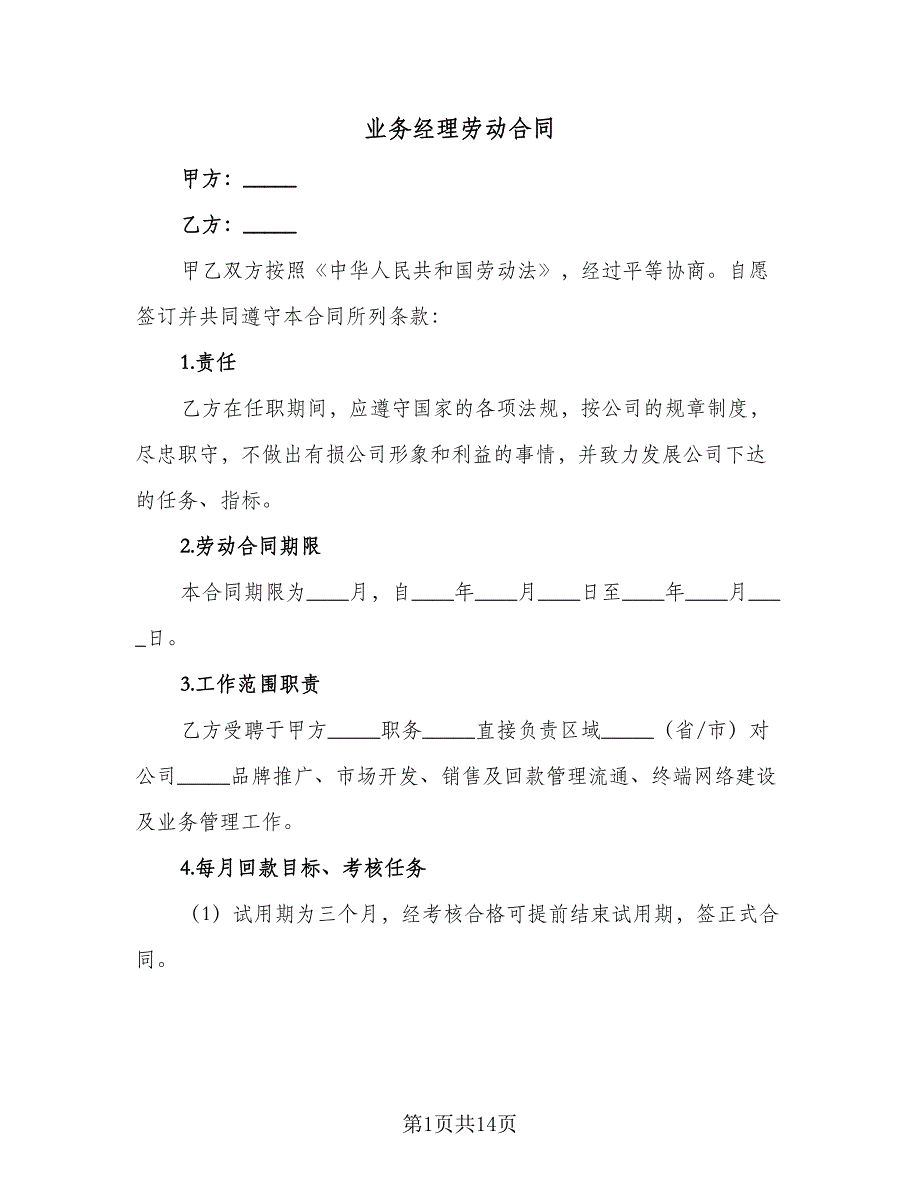 业务经理劳动合同
甲方：_____
乙方：_____
甲乙双方按照《中华人民共和国劳动法》，经过平等协商。自愿
签订并共同遵守本合同所列条款：
1.责任
乙方在任职期间，应遵守国家的各项法规，按公司的规章制度，
尽忠职守，不做出有损公司形象和利益的事情，并致力发展公司下达
的任务、指标。
2.劳动合同期限
本合同期限为____月，自____年____月____日至____年____月___
_日。
3.工作范围职责
乙方受聘于甲方_____职务_____直接负责区域_____（省/市）对
公司_____品牌推广、市场开发、销售及回款管理流通、终端网络建设
及业务管理工作。
4.每月回款目标、考核任务
（1）试用期为三个月，经考核合格可提前结束试用期，签正式合
同。
第1页共14页